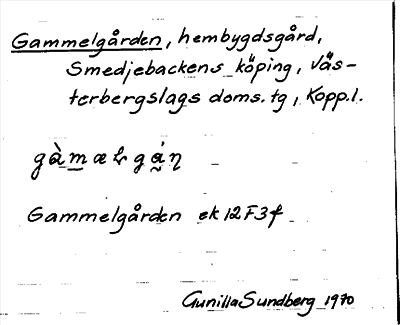 Gammelgården, hembygdsgård,
Smedjebackens köping, Väs-
terbergslags doms.tg, Kopp.l.
Gammelgården ek 12F3f
Gunilla Sundberg 1970